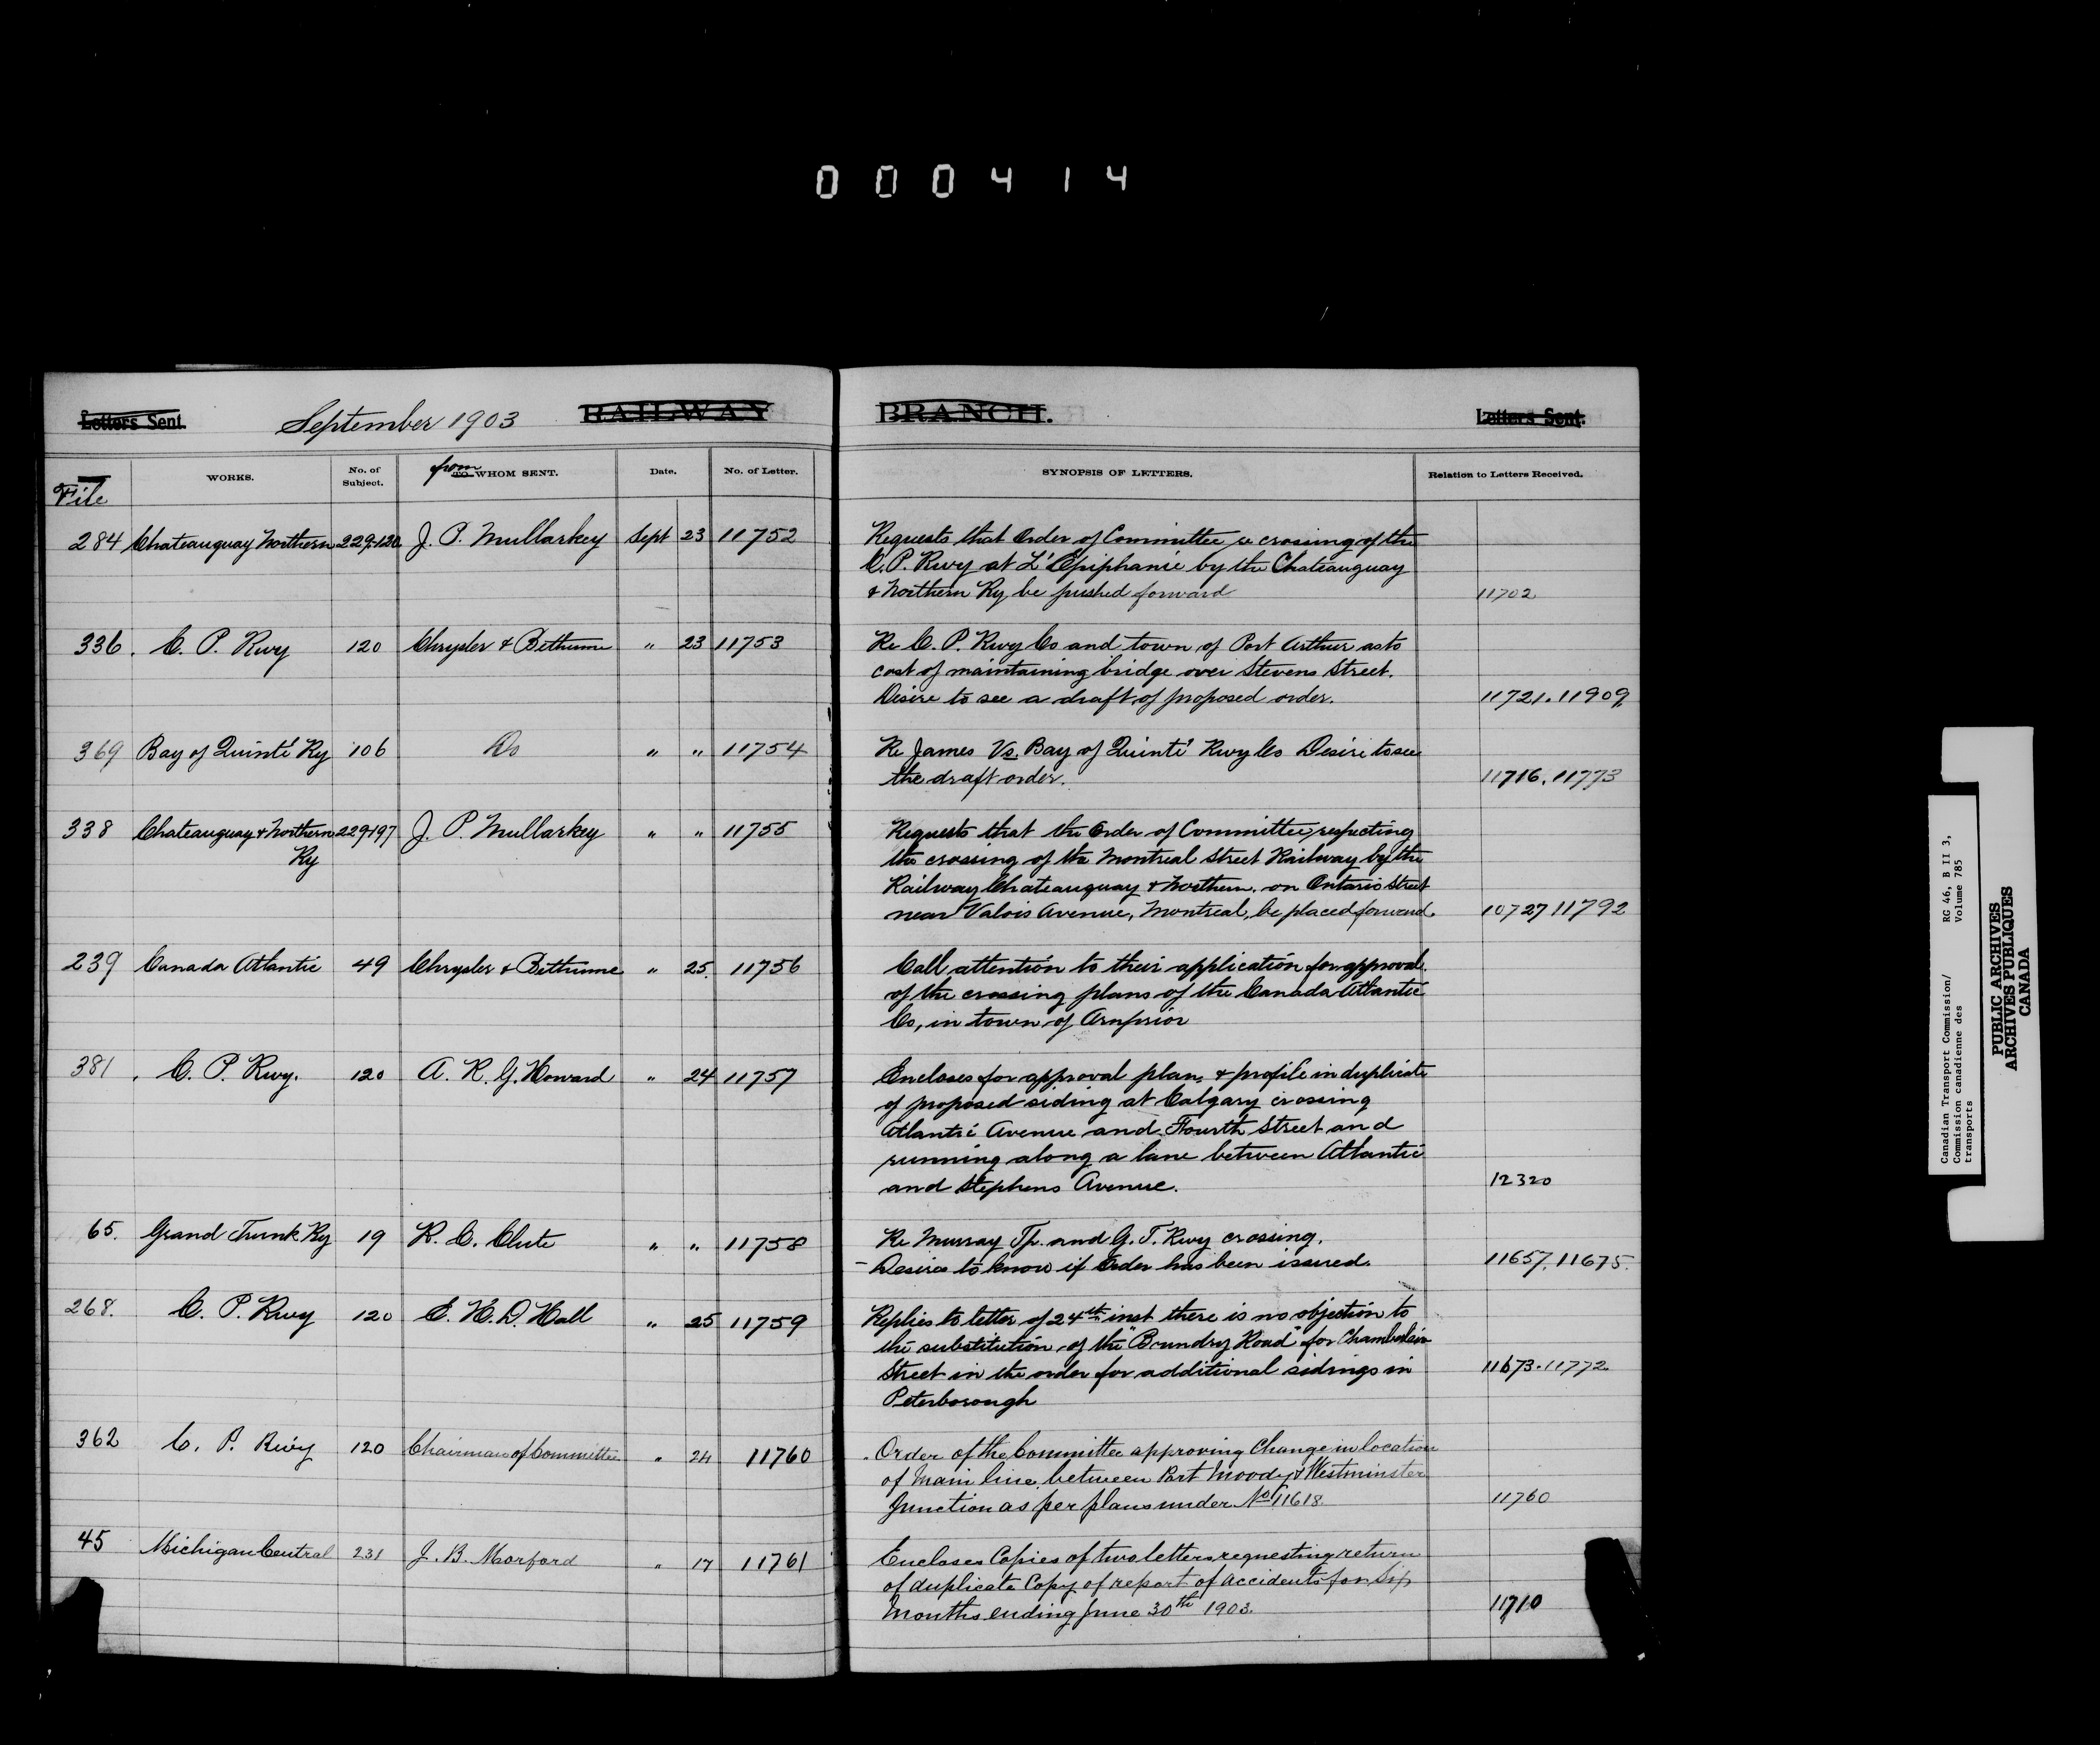 000414
Letters Sent. September 1903 RAILWAY BRANCH. Letters Sent.
File WORKS. No. of Subject. from TO WHOM SENT. Date. No. of Letter. SYNOPSIS OF LETTERS. Relation to Letters Received.
284 Chateauguay Northern 229-120 J. P. Mullarkey Sept 23 11752 Requests that Order of Committee re crossing of the
C. P. Rwy at L'Epiphanie by the Chateauguay
& Northern Ry be pushed forward 11702
336. C. P. Rwy 120 Chrysler & Bethune " 23 11753 Re C. P. Rwy Co and town of Port Arthur as to
cost of maintaining bridge over Stevens Street.
Desire to see a draft of proposed order. 11721. 11909
369 Bay of Quinté Ry 106 Do " " 11754 Re James Vs. Bay of Quinté Rwy Co Desire to see
the draft order. 11716. 11773
338 Chateauguay & Northern 229-197 J. P. Mullarkey " " 11755 Requests that the Order of Committee, respecting
Ry the crossing of the Montreal Street Railway by the
Railway Chateauguay & Northern. on Ontario Street
near Valois Avenue, Montreal, be placed forward. 10727 11792
239 Canada Atlantic 49 Chrysler & Bethune " 25. 11756 Call attention to their application for approval
of the crossing plans of the Canada Atlantic
Co, in town of Arnprior
381. C. P. Rwy. 120 A. R. G. Howard " 24 11757 Encloses for approval plan, & profile in duplicate
of proposed siding at Calgary crossing
Atlantic Avenue and Fourth Street and
running along a lane between Atlantic
and Stephens Avenue. 12320
65. Grand Trunk Ry 19 R. C. Clute " " 11758 Re Murray Tp. and G. T. Rwy crossing.
- Desires to know if Order has been issued. 11657. 11675.
268. C. P. Rwy 120 E. H. D. Hall " 25 11759 Replies to letter of 24th inst there is no objection to
the substitution of the "Boundry Road" for Chamberlain
Street in the order for additional sidings in 11673. 11772
Peterborough
362 C. P. Rwy 120 Chairman of Committee " 24 11760 Order of the Committee approving Change in location
of Main line between Port Moody & Westminster
Junction as per plans under No 11618. 11760
45 Michigan Central 231 J. B. Morford " 17 11761 Encloses Copies of two letters requesting return
of duplicate Copy of report of accidents for Six
Months ending June 30th 1903. 11710
Canadian Transport Commission/ RG 46, B II 3,
Commission canadienne des Volume 785
transports
PUBLIC ARCHIVES
ARCHIVES PUBLIQUES
CANADA